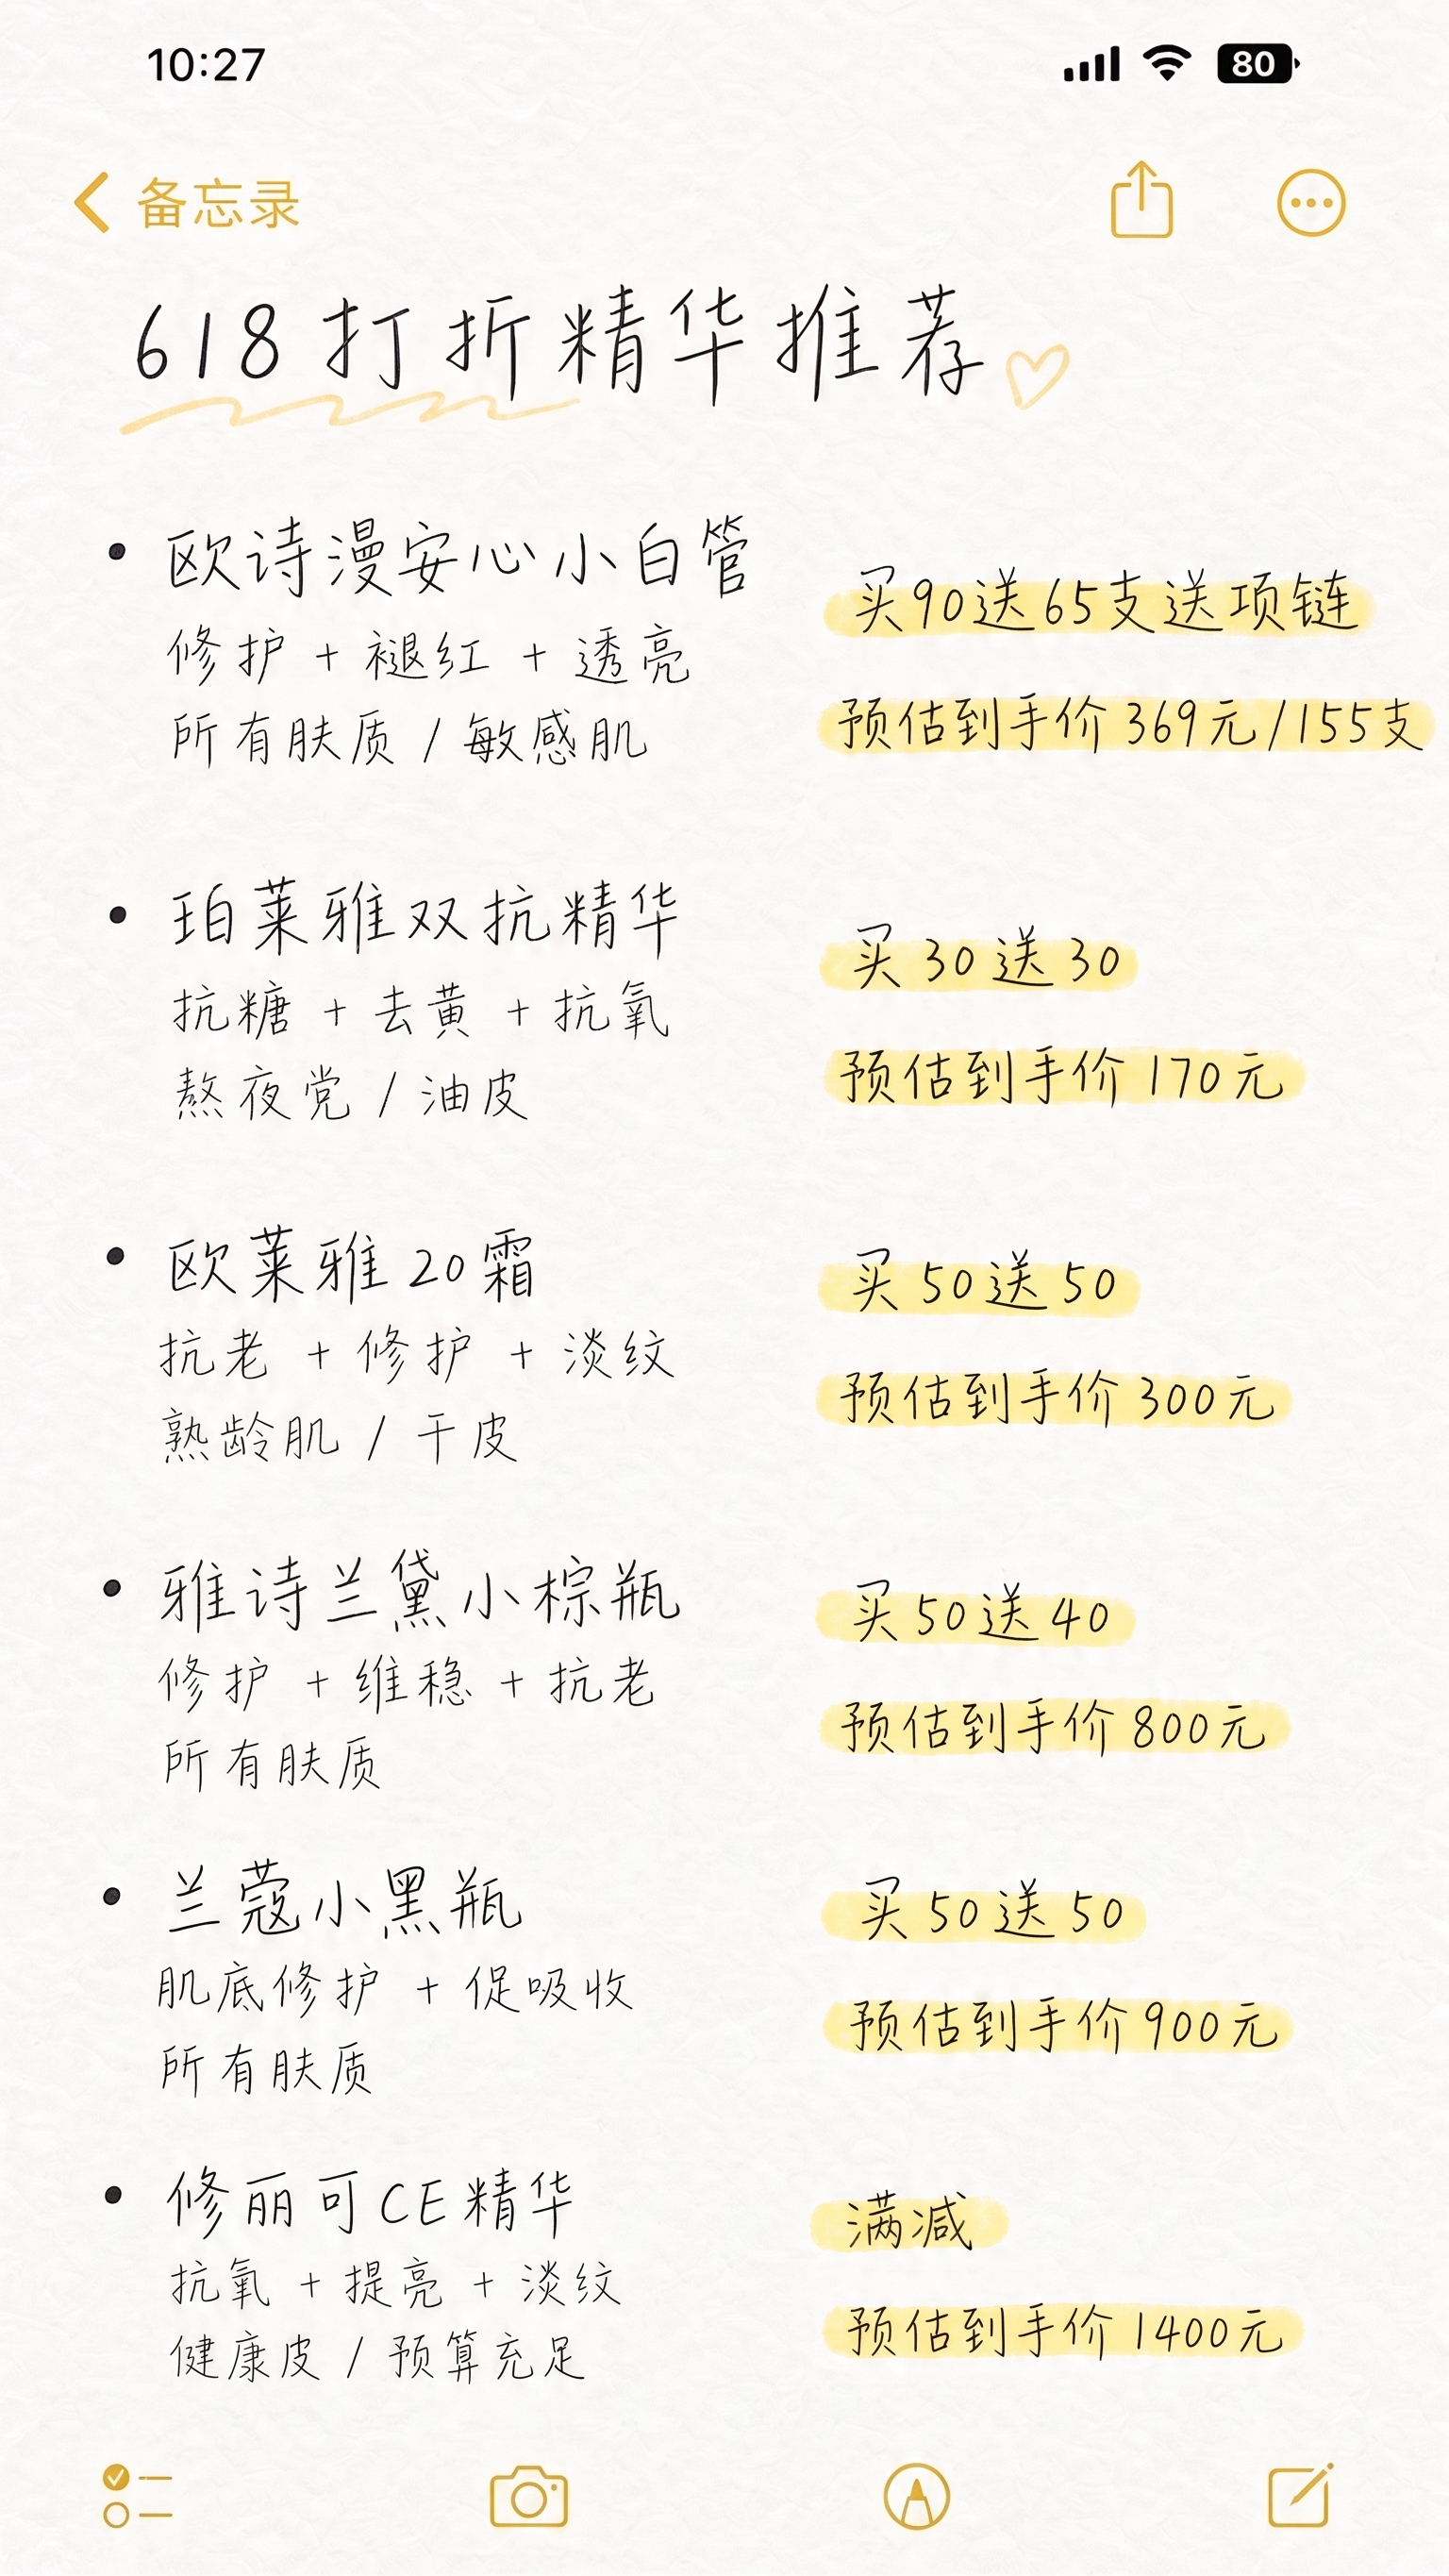 10:27
80
备忘录
618打折精华推荐
欧诗漫安心小白管
修护 + 褪红 + 透亮
所有肤质 / 敏感肌
买90送65支送项链
预估到手价369元/155支
珀莱雅双抗精华
抗糖 + 去黄 + 抗氧
熬夜党 / 油皮
买30送30
预估到手价170元
欧莱雅20霜
抗老 + 修护 + 淡纹
熟龄肌 / 干皮
买50送50
预估到手价300元
雅诗兰黛小棕瓶
修护 + 维稳 + 抗老
所有肤质
买50送40
预估到手价800元
兰蔻小黑瓶
肌底修护 + 促吸收
所有肤质
买50送50
预估到手价900元
修丽可CE精华
抗氧 + 提亮 + 淡纹
健康皮 / 预算充足
满减
预估到手价1400元